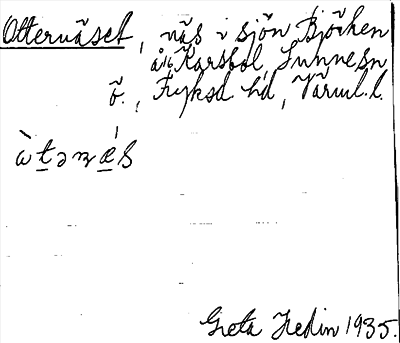 Otternäset, näs i sjön Björken
å Karsbol, Sunne sn
ö., Fryksd. hd, Värml. l.
ὼt̲ənǽ̲s
Greta Hedin 1935.